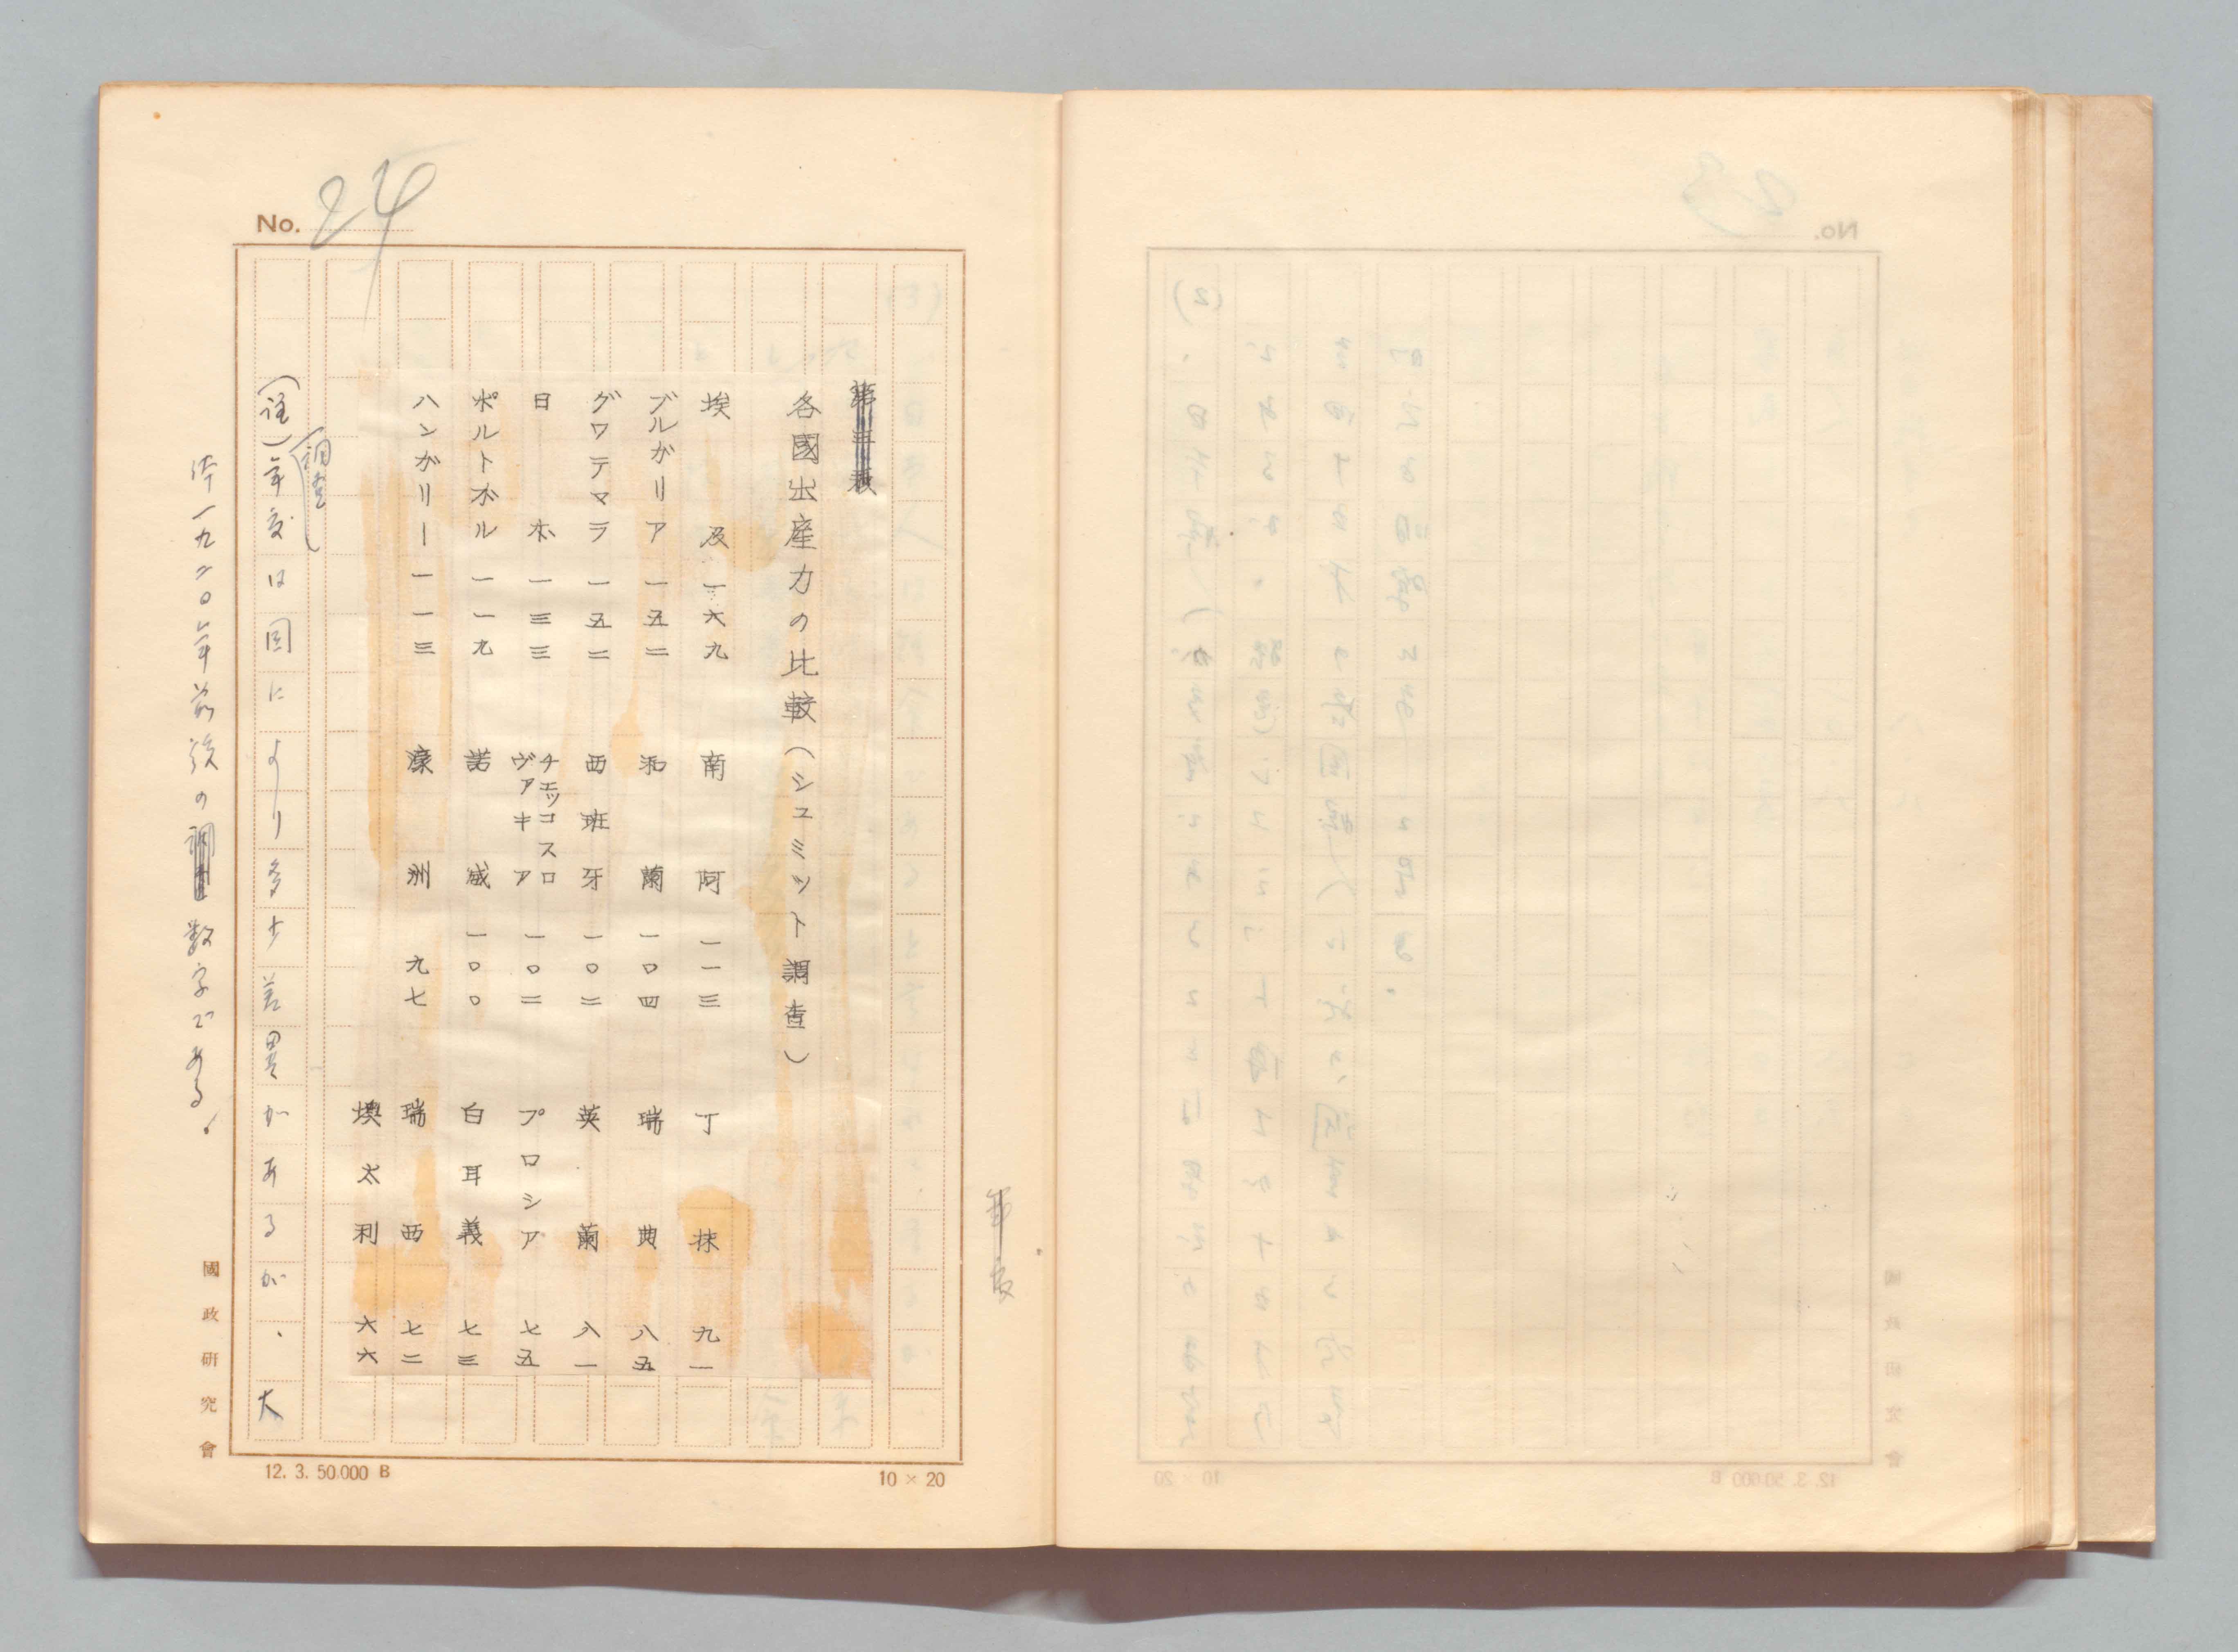 No. 24
第三表
各國出産力の比較(シュミット調査)
埃及 一六九
ブルガリア 一五二
グワテマラ 一五二
日本 一三三
ポルトガル 一一九
ハンガリー 一一三
南阿 一一三
和蘭 一〇四
西班牙 一〇二
チエッコスロヴァキア 一〇二
諾威 一〇〇
濠洲 九七
丁抹 九一
瑞典 八五
英蘭 八一
プロシア 七五
白耳義 七三
瑞西 七二
墺太利 六六
調査
(註)年度は国により多少差異があるが、大
体一九二〇年前後の調査数字である.
年度
國政研究會
12. 3. 50.000 B
10 × 20